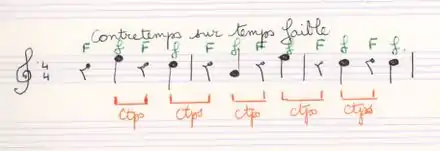 Contretemps sur temps faible
F f F f F f F f F f F f
4
4
Ctps Ctps Ctps Ctps Ctps